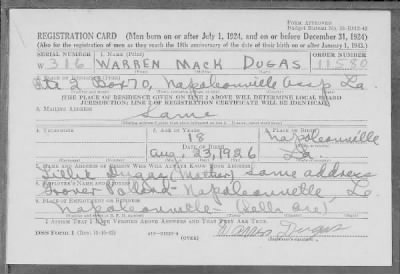 FORM APPROVED
REGISTRATION CARD (Men born on or after July 1, 1924, and on or before December 31, 1924)
(Also for the registration of men as they reach the 18th anniversary of the date of their birth on or after January 1, 1943.)
SERIAL NUMBER 1. NAME (Print) ORDER NUMBER
W 316 WARREN MACK DUGAS 11580
2. PLACE OF RESIDENCE (Print)
Rte 2 Box 70, Napoleonville Assp La.
[THE PLACE OF RESIDENCE GIVEN ON LINE 2 ABOVE WILL DETERMINE LOCAL BOARD
JURISDICTION; LINE 2 OF REGISTRATION CERTIFICATE WILL BE IDENTICAL]
3. MAILING ADDRESS
Same
4. TELEPHONE 5. AGE IN YEARS 6. PLACE OF BIRTH
18 Napoleonville
DATE OF BIRTH
Aug. 23, 1926 La.
7. NAME AND ADDRESS OF PERSON WHO WILL ALWAYS KNOW YOUR ADDRESS
Dugas (Mother) same address
8. EMPLOYER'S NAME AND ADDRESS
Napoleonville, La.
9. PLACE OF EMPLOYMENT OR BUSINESS
Napoleonville
I AFFIRM THAT I HAVE VERIFIED ABOVE ANSWERS AND THAT THEY ARE TRUE.
DSS Form 1 (OVER) Warren Dugas